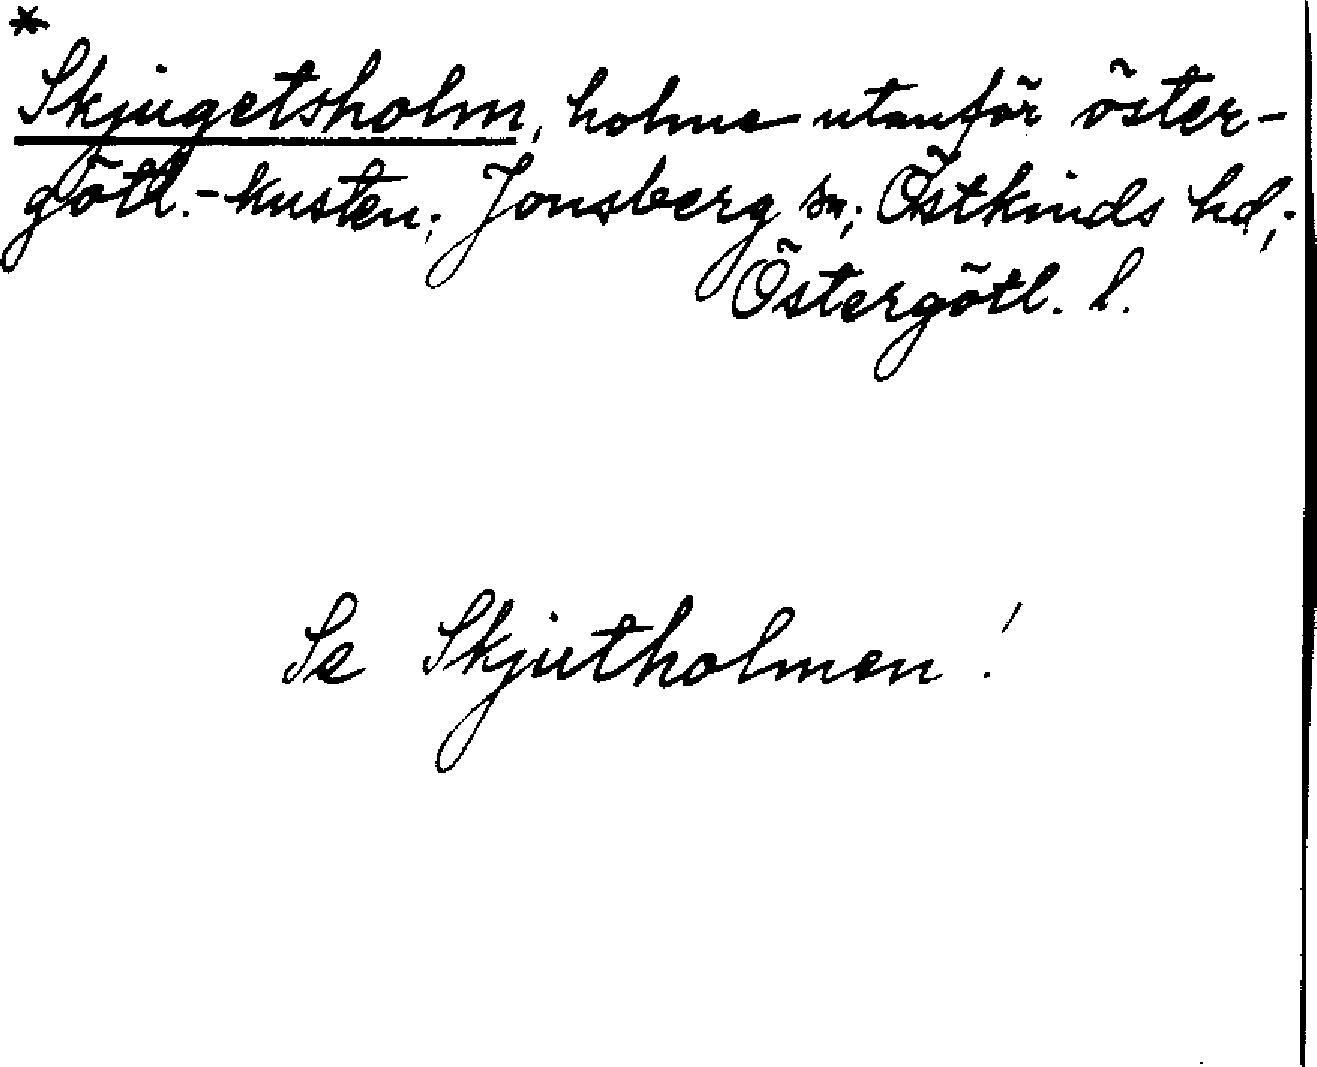 *
Skjugetsholm, holme utanför öster-
götl.-kusten; Jonsberg sn; Östkinds hd;
Östergötl. l.
Se Skjutholmen!